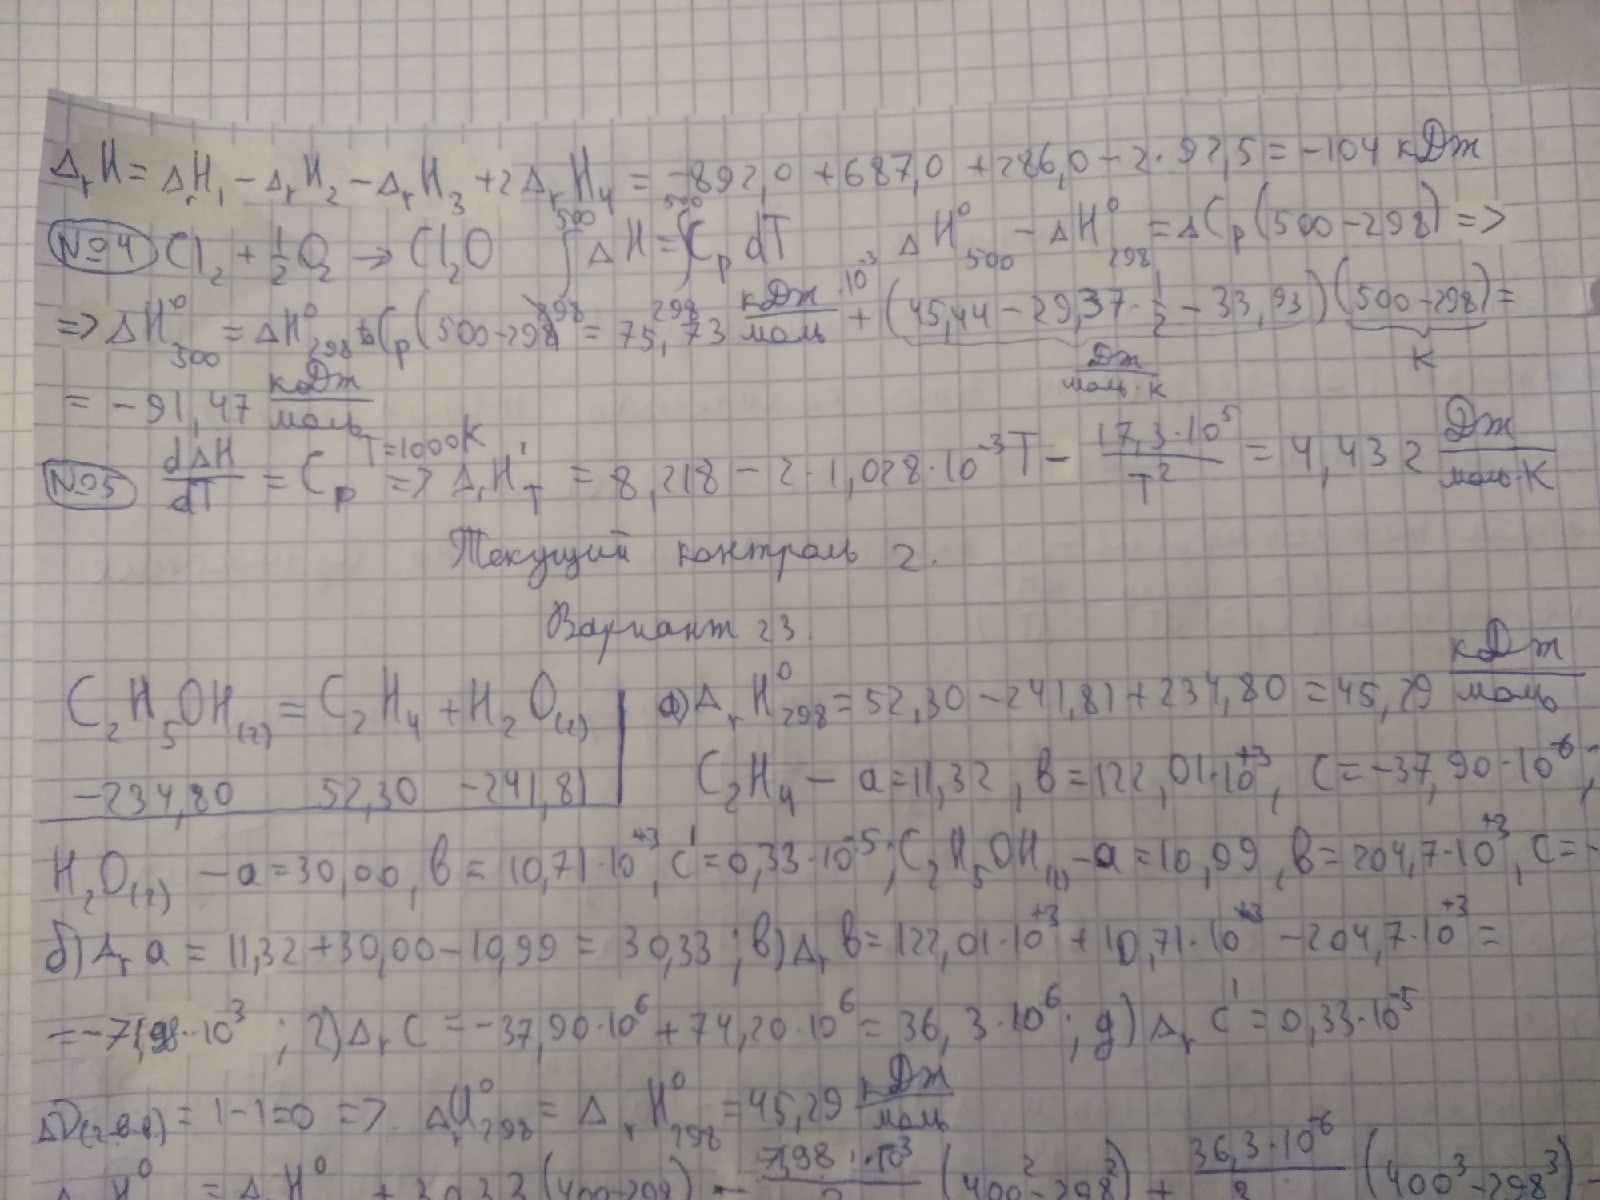 ΔrH = ΔrH₁ − ΔrH₂ − ΔrH₃ + 2ΔrH₄ = −892,0 + 687,0 + 286,0 − 2·92,5 = −104 кДж
№4 Cl₂ + 1/2 O₂ → Cl₂O ∫₂₉₈⁵⁰⁰ ΔH = ∫₂₉₈⁵⁰⁰ Cp dT ΔH⁰₅₀₀ − ΔH⁰₂₉₈ = ΔCp(500−298) =>
=> ΔH⁰₅₀₀ = ΔH⁰₂₉₈ + Cp(500−298) = 75,73 кДж/моль + (45,44 − 29,37·1/2 − 33,93)·10⁻³ (500−298) =
Дж/моль·К К
= −91,47 кДж/моль
№5 dΔH/dT = Cp T=1000K => ΔrH'T = 8,218 − 2·1,028·10⁻³T − 17,3·10⁵/T² = 4,432 Дж/моль·К
Текущий контроль 2.
Вариант 23.
C₂H₅OH(г) = C₂H₄ + H₂O(г) а) ΔrH⁰₂₉₈ = 52,30 − 241,81 + 234,80 = 45,29 кДж/моль
−234,80 52,30 −241,81 C₂H₄ − a = 11,32, в = 122,01·10⁺³, c = −37,90·10⁻⁶;
H₂O(г) − a = 30,00, в = 10,71·10⁺³, c' = 0,33·10⁻⁵; C₂H₅OH(г) − a = 10,99, в = 204,7·10⁺³, c = −
б) Δra = 11,32 + 30,00 − 10,99 = 30,33; в) Δrв = 122,01·10⁺³ + 10,71·10⁺³ − 204,7·10⁺³ =
= −71,98·10³; г) Δrc = −37,90·10⁶ + 74,20·10⁶ = 36,3·10⁶; д) Δrc' = 0,33·10⁻⁵
Δν(г.в.в.) = 1−1=0 => ΔrU⁰₂₉₈ = ΔrH⁰₂₉₈ = 45,29 кДж/моль
ΔrH⁰ = ΔrH⁰ + 30,33(400−298) − 71,98·10³/2 (400²−298²) + 36,3·10⁻⁶ (400³−298³) −